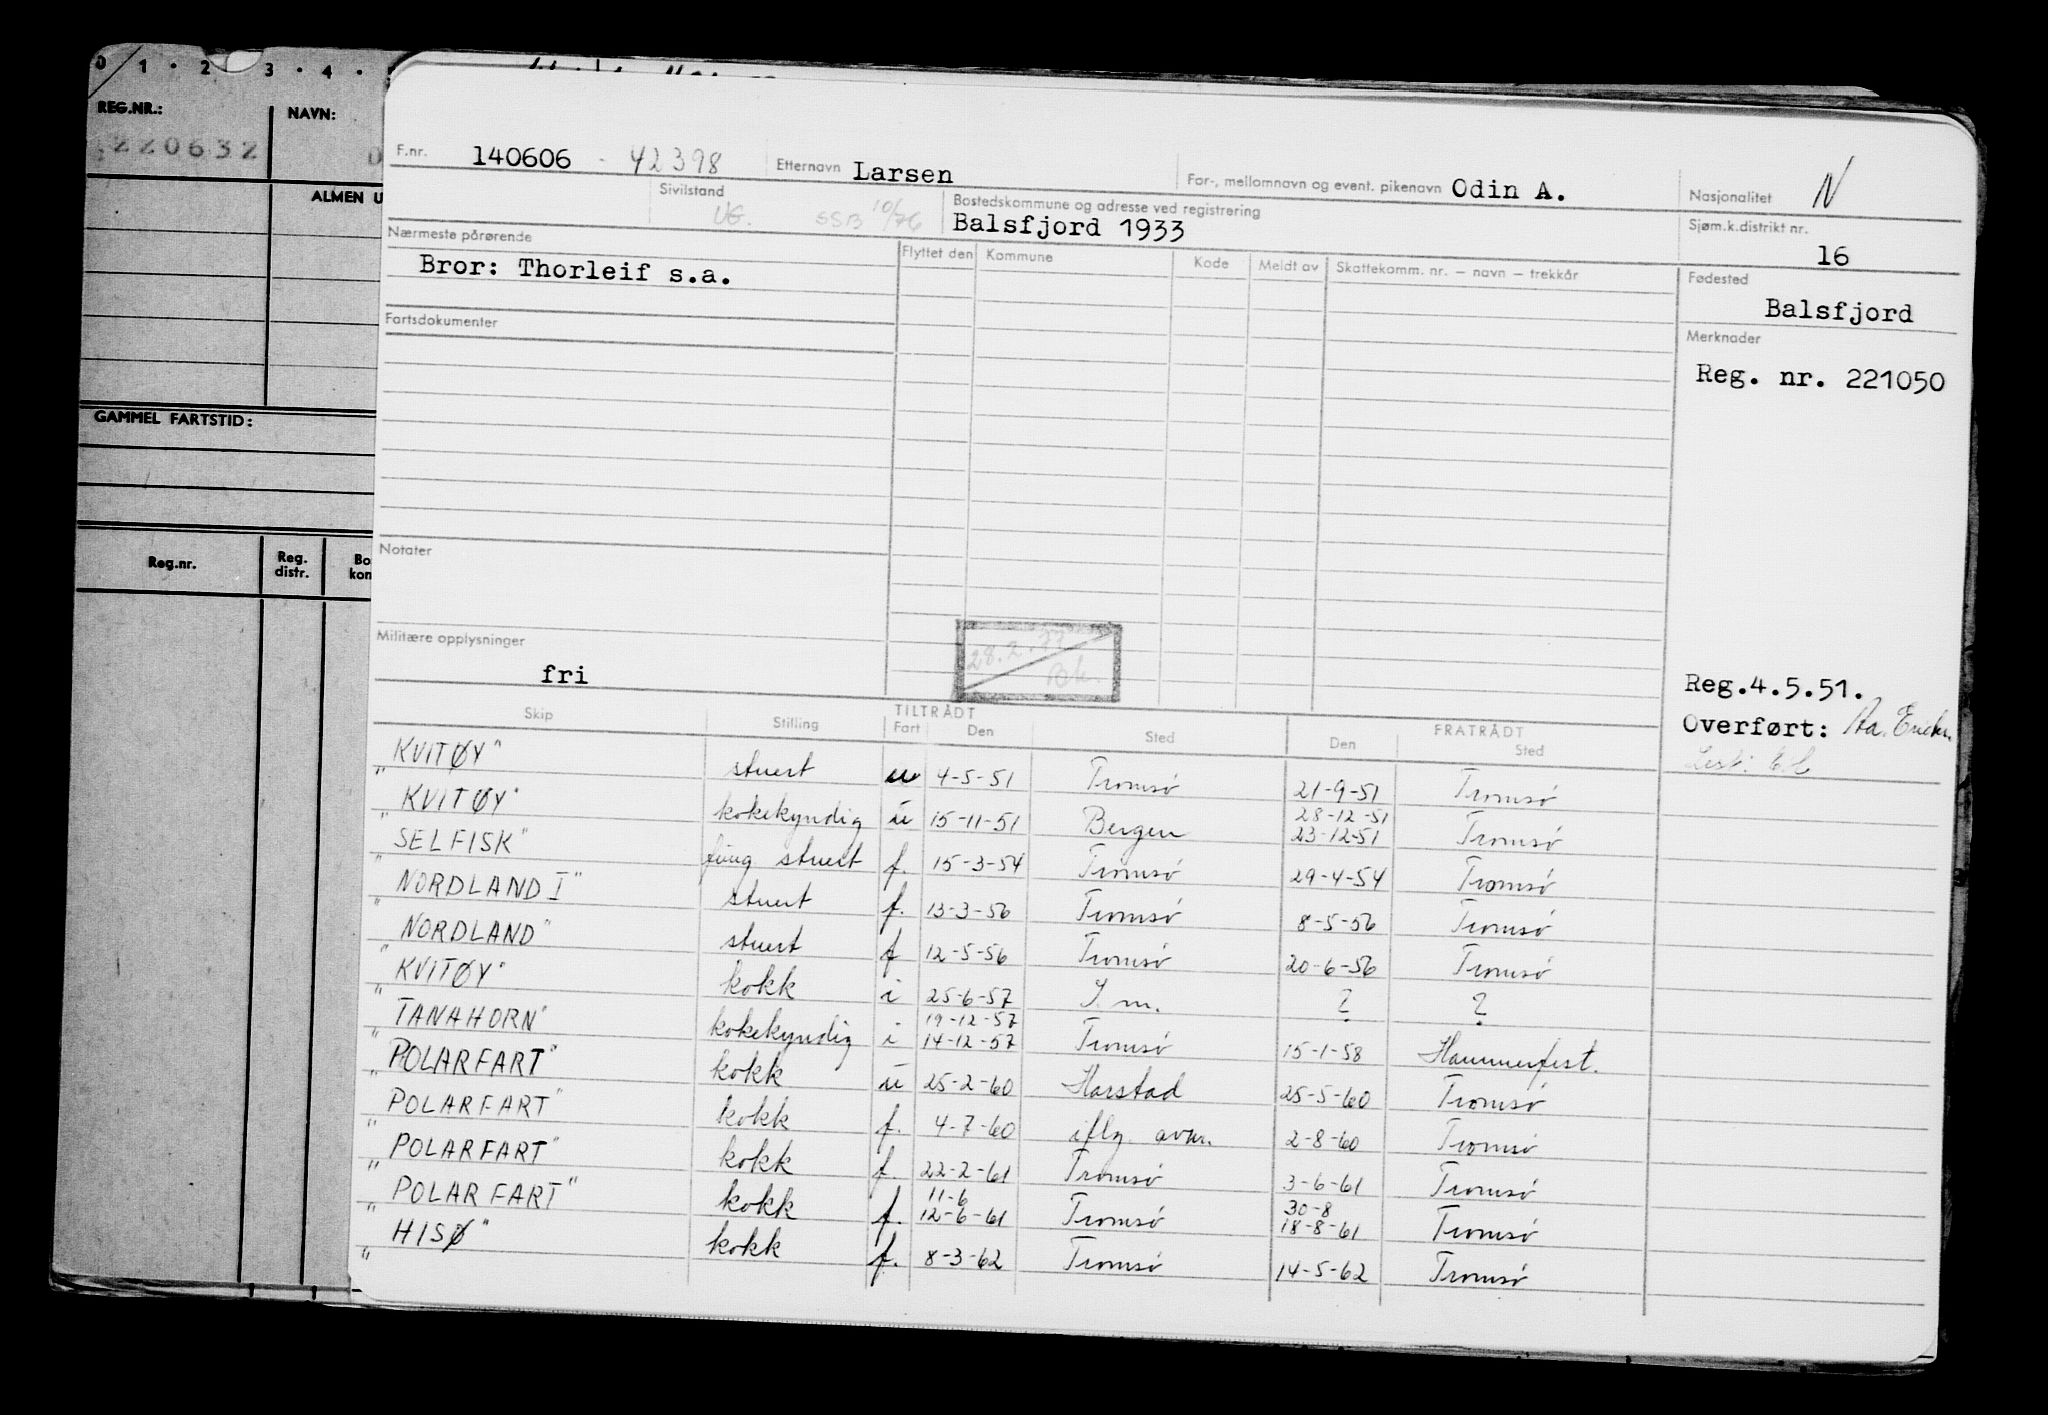 0 1 · 2 · 3 · 4 ·
REG.NR.: NAVN:
220632
ALMEN U
GAMMEL FARTSTID:
Reg.nr. Reg. distr. Bo kon
F.nr. 140606 - 42398 Etternavn Larsen For-, mellomnavn og event. pikenavn Odin A. Nasjonalitet N
Sivilstand UG. SSB 10/76 Bostedskommune og adresse ved registrering Balsfjord 1933 Sjøm.k.distrikt nr. 16
Nærmeste pårørende Flyttet den Kommune Kode Meldt av Skattekomm. nr. – navn – trekkår Fødested
Bror: Thorleif s.a. Balsfjord
Fartsdokumenter Merknader
Reg. nr. 221050
Notater
28.2.77
Militære opplysninger
fri Reg.4.5.51.
Overført: Aa.
TILTRÅDT FRATRÅDT
Skip Stilling Fart Den Sted Den Sted
"KVITØY" stuert u 4-5-51 Tromsø 21-9-51 Tromsø
28-12-51
"KVITØY" kokekyndig u 15-11-51 Bergen 23-12-51 Tromsø
"SELFISK" fung stuert f. 15-3-54 Tromsø 29-4-54 Tromsø
"NORDLAND I" stuert f. 13-3-56 Tromsø 8-5-56 Tromsø
"NORDLAND" stuert f 12-5-56 Tromsø 20-6-56 Tromsø
"KVITØY" kokk i 25-6-57 I. m. ? ?
19-12-57
"TANAHORN" kokekyndig i 14-12-57 Tromsø 15-1-58 Hammerfest.
"POLARFART" kokk u 25-2-60 Harstad 25-5-60 Tromsø
"POLARFART" kokk f. 4-7-60 iflg. avm. 2-8-60 Tromsø
"POLARFART" kokk f. 22-2-61 Tromsø 3-6-61 Tromsø
11-6 30-8
"POLARFART" kokk f. 12-6-61 Tromsø 18-8-61 Tromsø
"HISØ" kokk f. 8-3-62 Tromsø 14-5-62 Tromsø
"